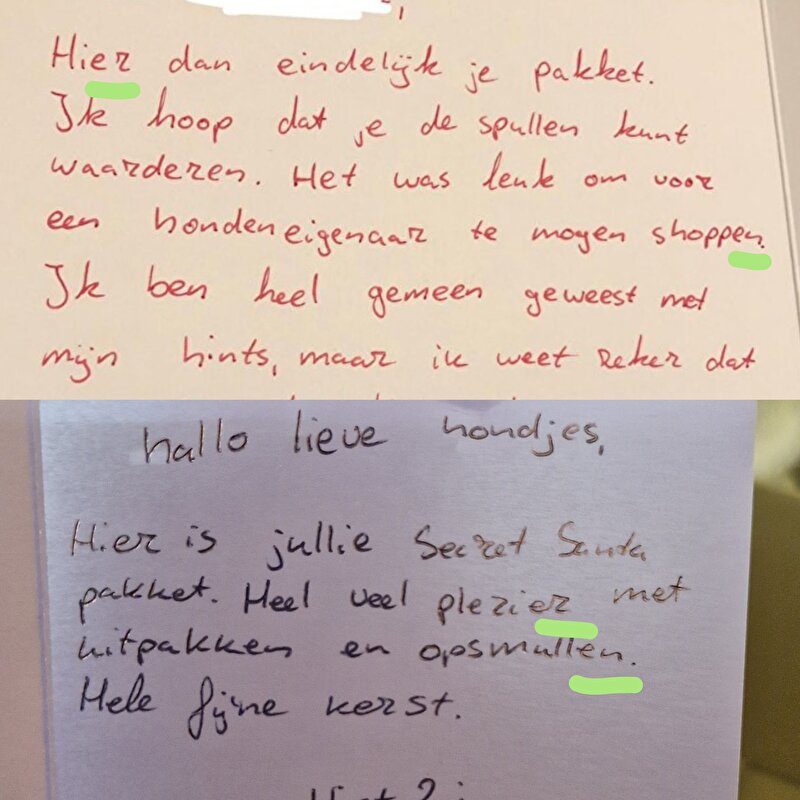 Hier dan eindelijk je pakket.
Ik hoop dat je de spullen kunt
waarderen. Het was leuk om voor
een hondeneigenaar te mogen shoppen.
Ik ben heel gemeen geweest met
mijn hints, maar ik weet zeker dat
hallo lieve hondjes,
Hier is jullie Secret Santa
pakket. Heel veel plezier met
uitpakken en opsmullen.
Hele fijne kerst.